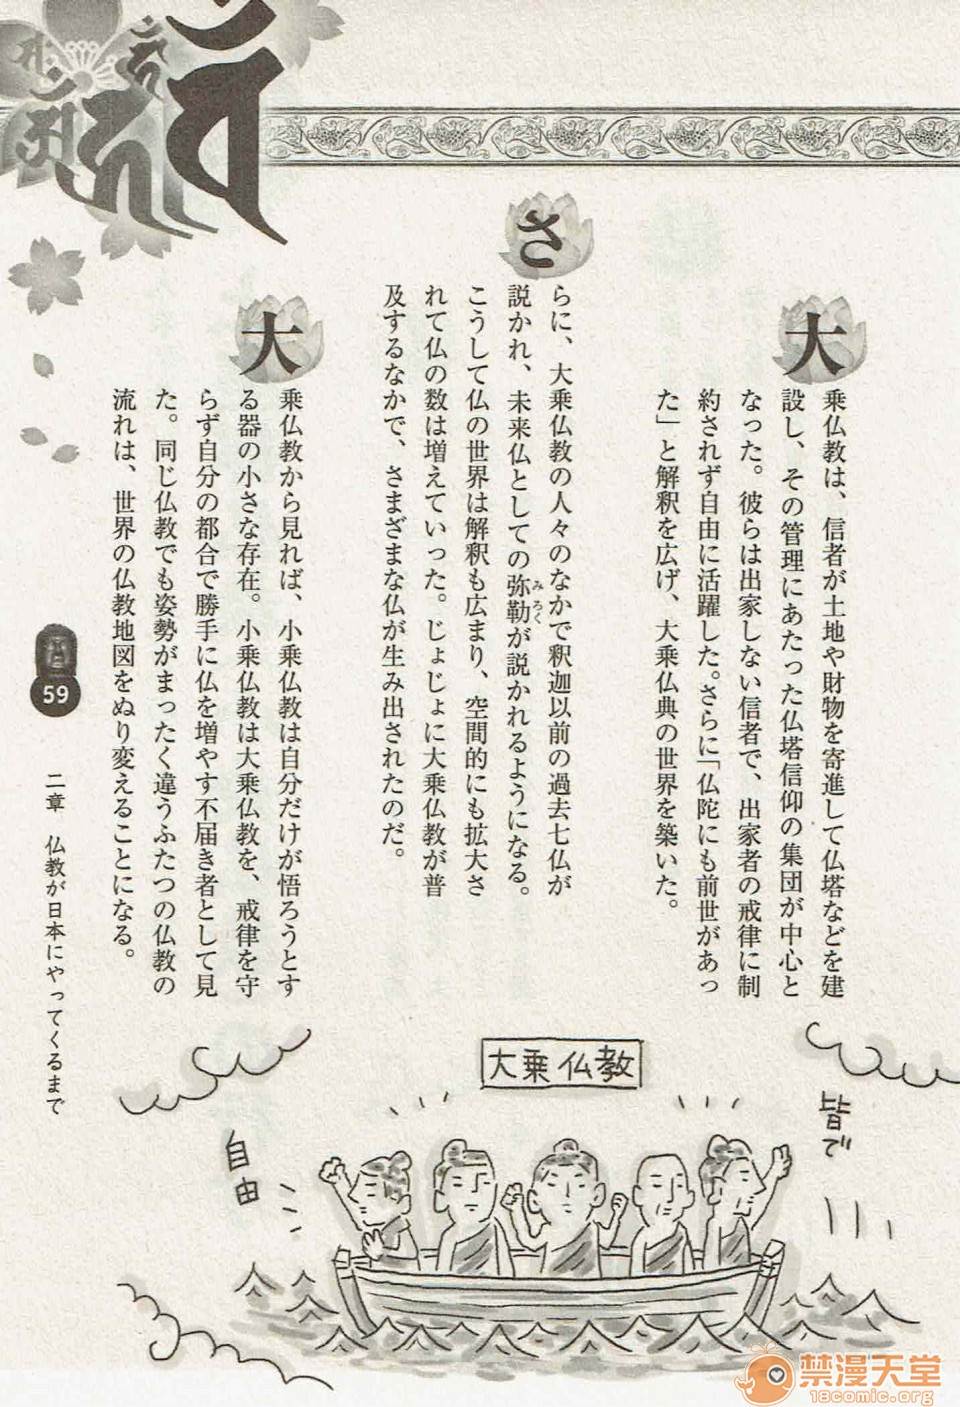 大乗仏教は、信者が土地や財物を寄進して仏塔などを建
設し、その管理にあたった仏塔信仰の集団が中心と
なった。彼らは出家しない信者で、出家者の戒律に制
約されず自由に活躍した。さらに「仏陀にも前世があっ
た」と解釈を広げ、大乗仏典の世界を築いた。
さらに、大乗仏教の人々のなかで釈迦以前の過去七仏が
説かれ、未来仏としての弥勒が説かれるようになる。
みろく
こうして仏の世界は解釈も広まり、空間的にも拡大さ
れて仏の数は増えていった。じょじょに大乗仏教が普
及するなかで、さまざまな仏が生み出されたのだ。
大乗仏教から見れば、小乗仏教は自分だけが悟ろうとす
る器の小さな存在。小乗仏教は大乗仏教を、戒律を守
らず自分の都合で勝手に仏を増やす不届き者として見
た。同じ仏教でも姿勢がまったく違うふたつの仏教の
流れは、世界の仏教地図をぬり変えることになる。
大乗仏教
皆で
自由
59
二章 仏教が日本にやってくるまで
禁漫天堂
18comic.org